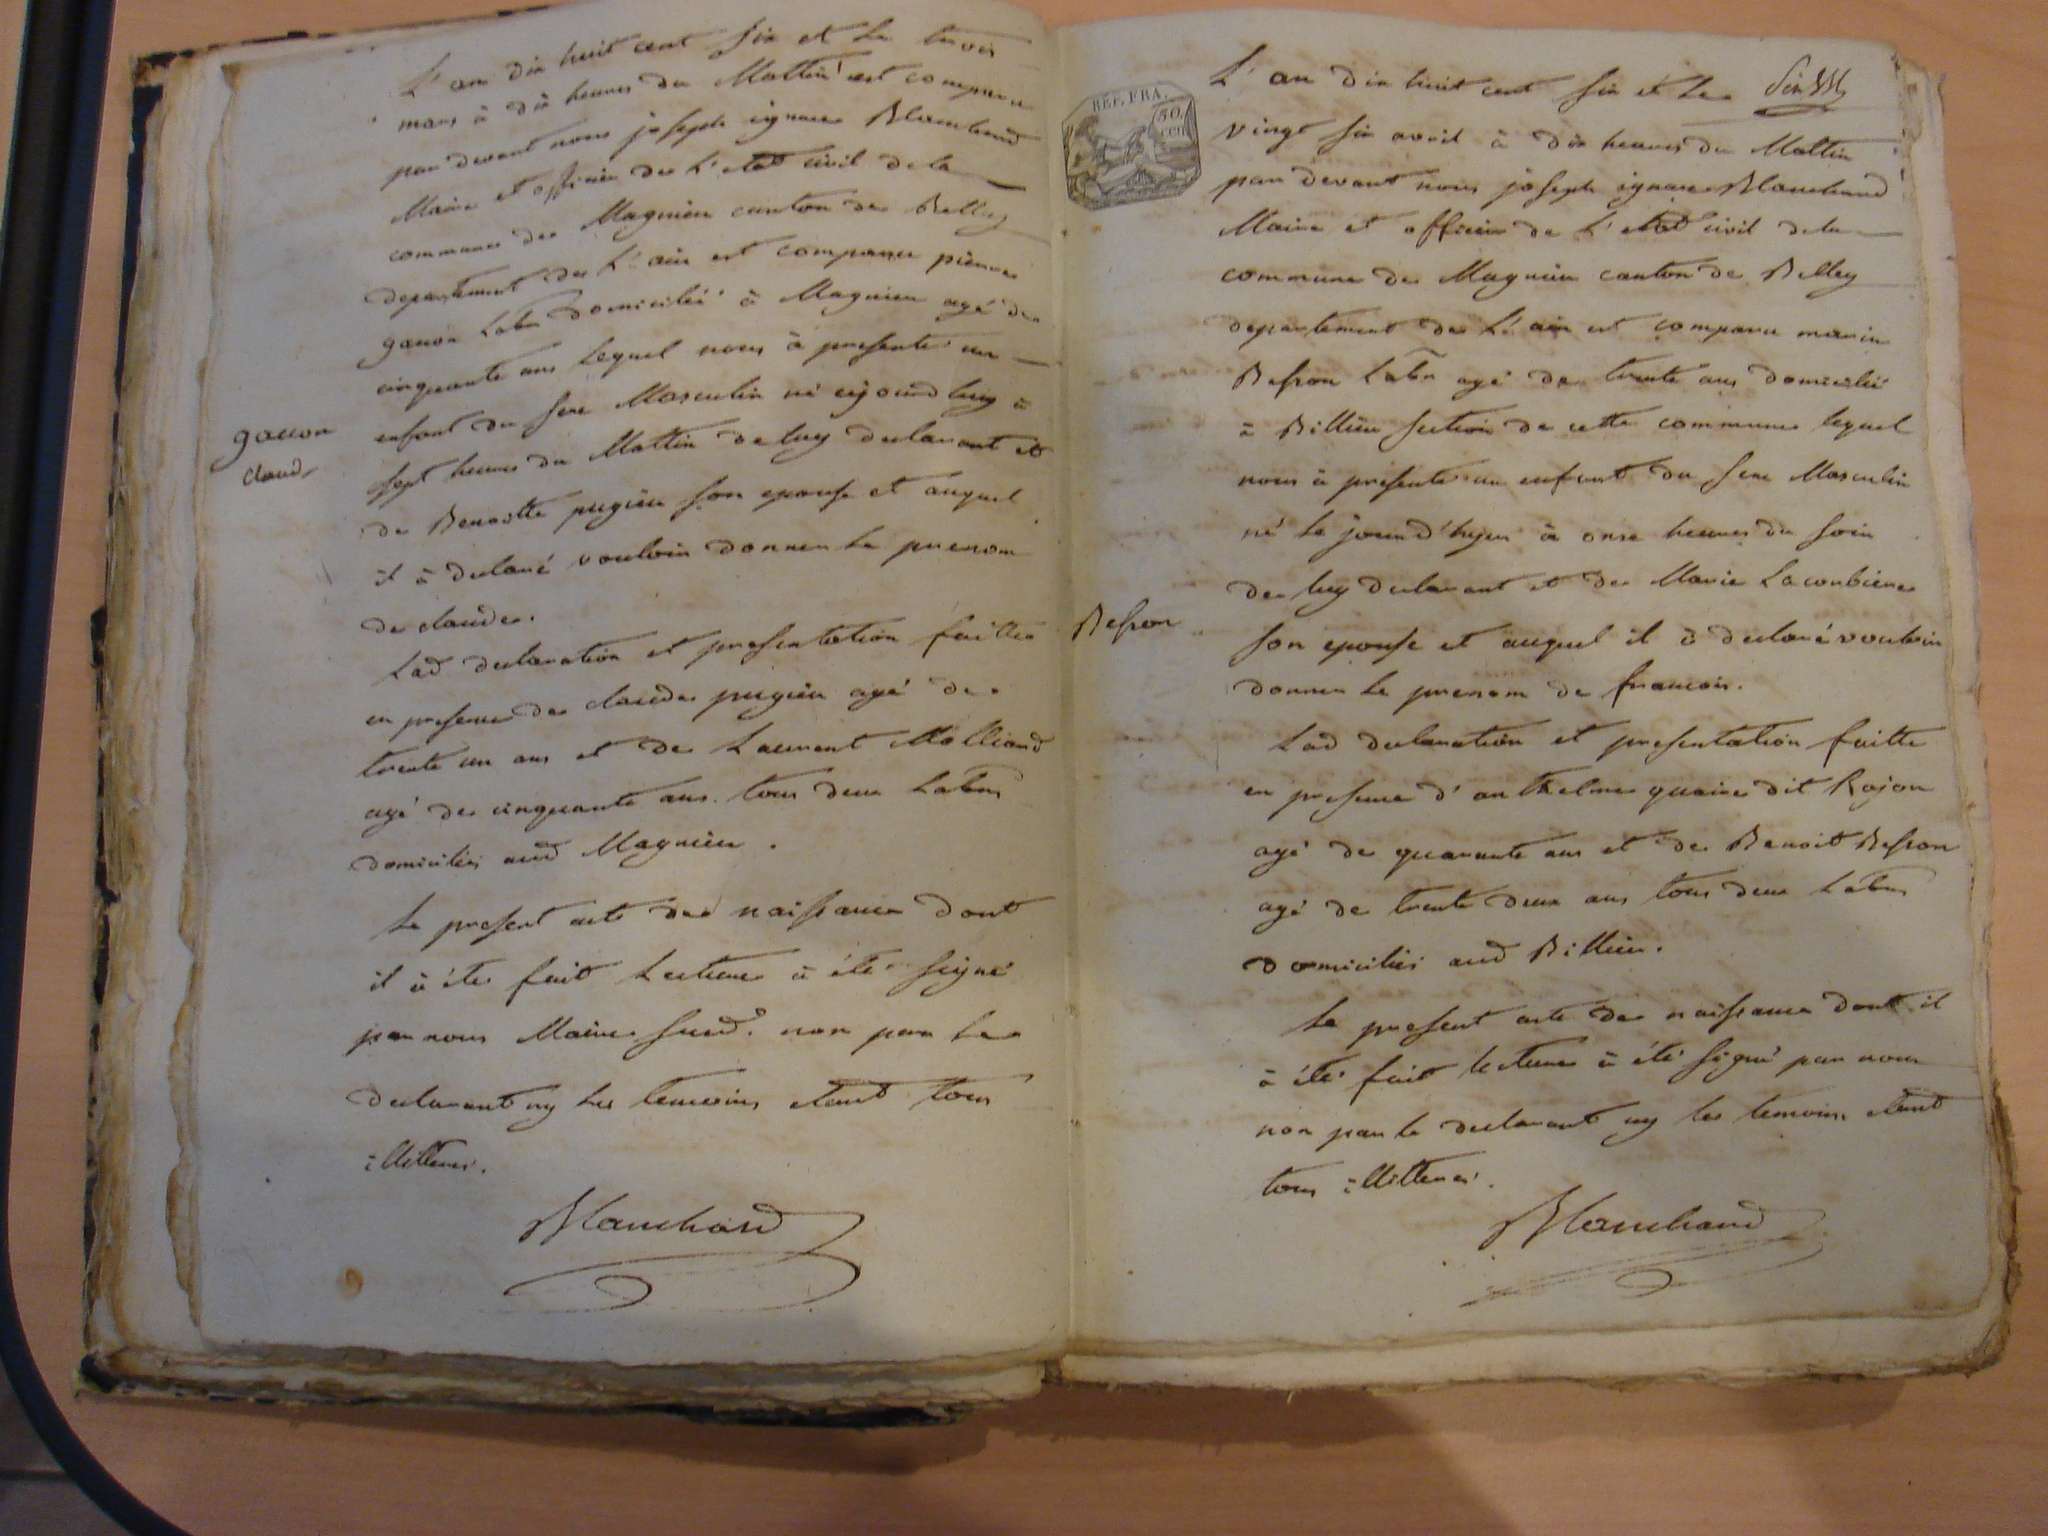 L'an dix huit cent six et le trois
mars à dix heures du Mattin est comparu
par devant nous joseph ignace Blanchard
Maire et officier de L'etat civil de la
commune de Magnieu canton de Belley
departement de L'ain est comparu pierre
gauon Labr domicilié à Magnieu agé de
cinquante ans Lequel nous à presenté un
enfant du sexe Masculin né cejourd'huy à
sept heures du Mattin de luy declarant et
gauon
claud
de Benoitte pugieu son epouse et auquel
il à declaré vouloir donner le prenom
de claude.
Lad declaration et presentation faitte
en presence de claude pugieu agé de
trente un ans et de Laurent Molliand
agé de cinquante ans. tous deux Labrs
domiciliés aud Magnieu.
Le present acte de naissance dont
il à été fait Lecture à été signé
par nous Maire susd. non par le
declarant ny les temoins etant tous
illitterés.
Blanchard
REP. FRA.
50.
CEN
L'an dix huit cent six et le
vingt six avril à dix heures du Mattin
par devant nous joseph ignace Blanchard
Maire et officier de L'etat civil de la
commune de Magnieu canton de Belley
departement de L'ain est comparu marin
Besson Labr agé de trente ans domicilié
à Billieu section de cette commune lequel
nous à presenté un enfant du sexe Masculin
né le jour d'hyer à onze heures du soir
de luy declarant et de Marie Lacorbiere
Besson
son epouse et auquel il à declaré vouloir
donner le prenom de francois.
Lad declaration et presentation faitte
en presence d'anthelme quaire dit Rojon
agé de quarante ans et de Benoit Besson
agé de trente deux ans tous deux Labrs
domiciliés aud Billieu.
Le present acte de naissance dont il
à été fait lecture à été signé par nous
non par le declarant ny les temoins etant
tous illitterés.
Blanchard